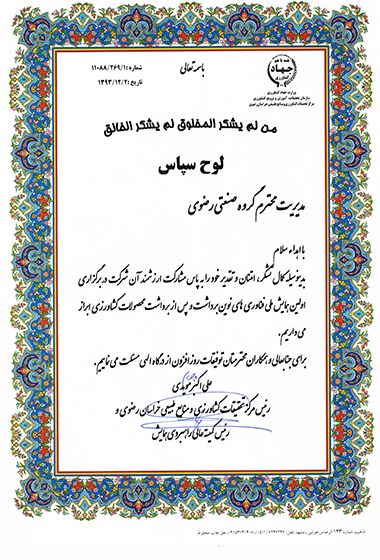 باسمه تعالی
شماره: ۱۱۰۸۸/۲۶۹/۱
تاریخ: ۱۳۹۳/۱۲/۲
همه با هم
جهاد
کشاورزی
وزارت جهاد کشاورزی
سازمان تحقیقات، آموزش و ترویج کشاورزی
مرکز تحقیقات کشاورزی و منابع طبیعی خراسان رضوی
من لم یشکر المخلوق لم یشکر الخالق
لوح سپاس
مدیریت محترم گروه صنعتی رضوی
با اهداء سلام
بدینوسیله کمال تشکر، امتنان و تقدیر خود را به پاس مشارکت ارزشمند آن شرکت در برگزاری
اولین همایش ملی فناوری های نوین برداشت و پس از برداشت محصولات کشاورزی ابراز
می داریم.
برای جنابعالی و همکاران محترمتان توفیقات روزافزون از درگاه الهی مسئلت می نماییم.
علی اکبر مویدی
رئیس مرکز تحقیقات کشاورزی و منابع طبیعی خراسان رضوی و
رئیس کمیته عالی راهبردی همایش
تذهیب شماره ۱۹۳